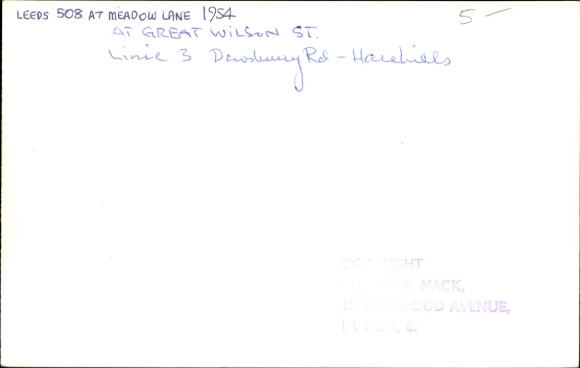 LEEDS 508 AT MEADOW LANE 1954
5 —
AT GREAT WILSON ST.
Linie 3 Dewsbury Rd - Harehills
COPYRIGHT
F. MACK,
WOOD AVENUE,
LEEDS, 8.